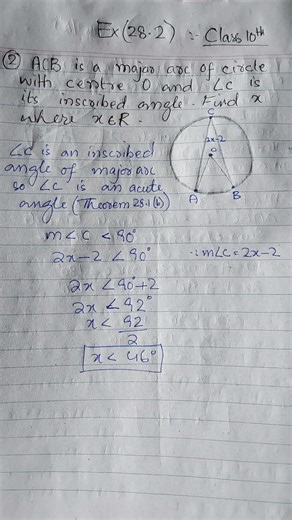 Ex(28.2) :- Class 10th
② ACB is a major arc of circle
with centre O and ∠C is
its inscribed angle. Find x
where x∈R.
C
2x-2
O
A
B
∠C is an inscribed
angle of major arc
so ∠C is an acute
angle (Theorem 28.1(b))
m∠C < 90°
2x-2 < 90° ∵ m∠C = 2x-2
2x < 90°+2
2x < 92°
x < 92
2
x < 46°